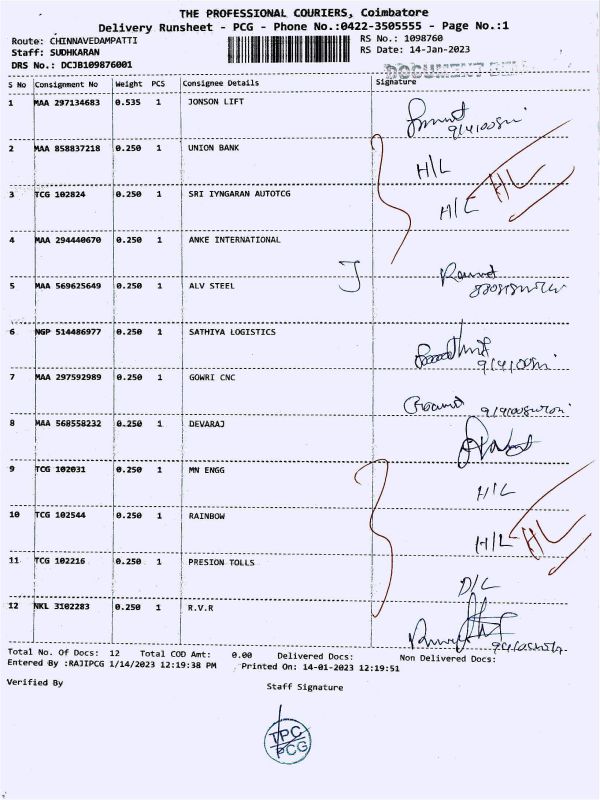 THE PROFESSIONAL COURIERS, Coimbatore
Delivery Runsheet - PCG - Phone No.:0422-3505555 - Page No.:1
Route: CHINNAVEDAMPATTI RS No.: 1098760
Staff: SUDHKARAN RS Date: 14-Jan-2023
DRS No.: DCJB109876001
S No Consignment No Weight PCS Consignee Details Signature
1 MAA 297134683 0.535 1 JONSON LIFT
2 MAA 858837218 0.250 1 UNION BANK H/L
HL
3 TCG 102824 0.250 1 SRI IYNGARAN AUTOTCG H/L
4 MAA 294440670 0.250 1 ANKE INTERNATIONAL
5 MAA 569625649 0.250 1 ALV STEEL
6 NGP 514486977 0.250 1 SATHIYA LOGISTICS
7 MAA 297592989 0.250 1 GOWRI CNC
8 MAA 568558232 0.250 1 DEVARAJ
9 TCG 102031 0.250 1 MN ENGG H/L
10 TCG 102544 0.250 1 RAINBOW H/L HL
11 TCG 102216 0.250 1 PRESION TOLLS D/L
12 NKL 3102283 0.250 1 R.V.R
Total No. Of Docs: 12 Total COD Amt: 0.00 Delivered Docs: Non Delivered Docs:
Entered By :RAJIPCG 1/14/2023 12:19:38 PM Printed On: 14-01-2023 12:19:51
Verified By Staff Signature
TPC
PCG